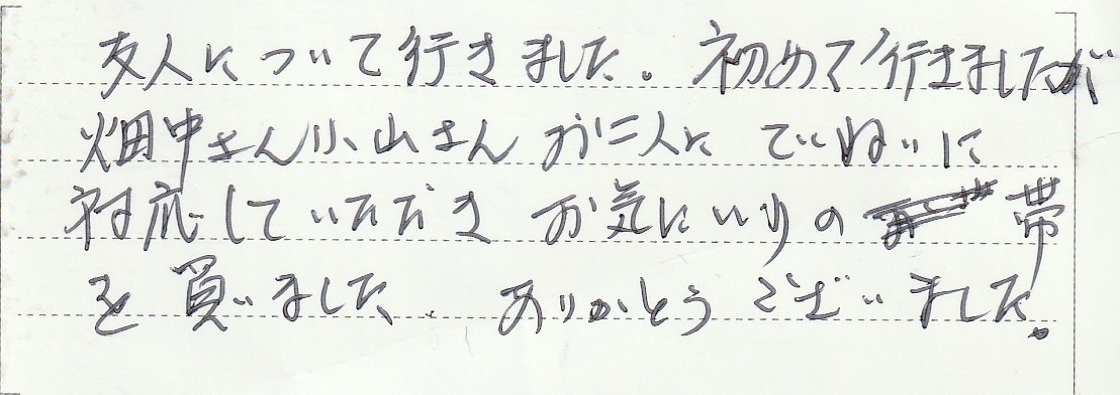 友人について行きました。初めて行きましたが
畑中さん小山さん お二人に ていねいに
対応していただき お気にいりの 帯
を買いました。ありがとうございました。